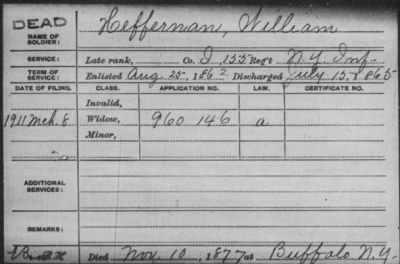 DEAD
NAME OF SOLDIER: Heffernan, William
SERVICE: Late rank, Co. I, 155 Reg't N.Y. Inf.
TERM OF SERVICE: Enlisted Aug. 25, 1862 Discharged July 15, 1865
DATE OF FILING. CLASS. APPLICATION NO. LAW. CERTIFICATE NO.
Invalid,
1911 Mch. 8 Widow, 960 146 a
Minor,
ADDITIONAL SERVICES:
REMARKS:
Died Nov. 10, 1877 at Buffalo N.Y.